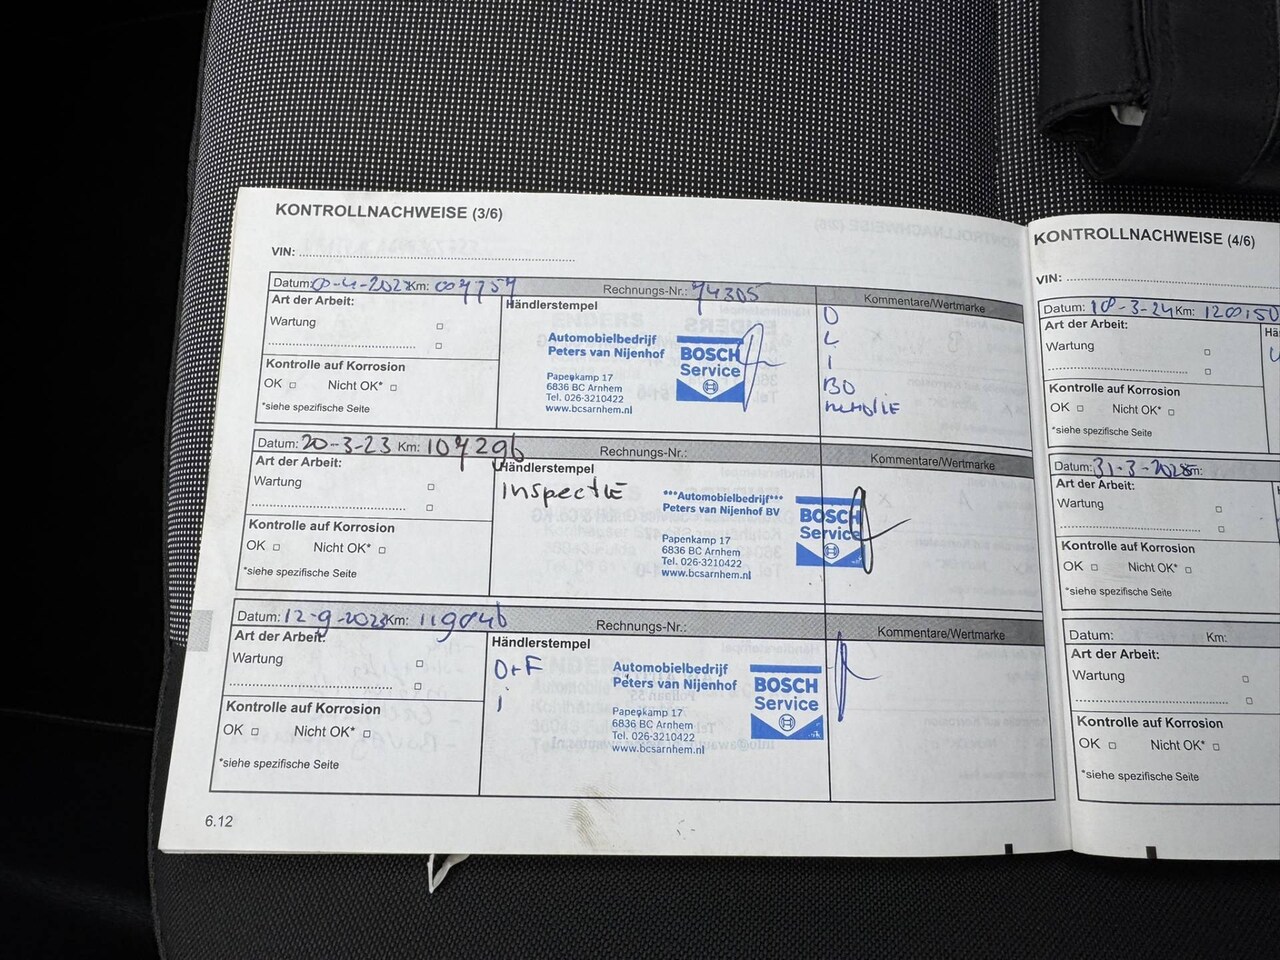 KONTROLLNACHWEISE (3/6)
VIN:
Datum: Km: Rechnungs-Nr.: 74305 Kommentare/Wertmarke
Art der Arbeit:
Händlerstempel
Wartung
Kontrolle auf Korrosion
OK Nicht OK*
*siehe spezifische Seite
Automobielbedrijf
Peters van Nijenhof
Papenkamp 17
6836 BC Arnhem
Tel. 026-3210422
www.bcsarnhem.nl
BOSCH
Service
O
L
I
BO
Datum: 20-3-23 Km: 107296 Rechnungs-Nr.: Kommentare/Wertmarke
Art der Arbeit:
Händlerstempel
Wartung
Kontrolle auf Korrosion
OK Nicht OK*
*siehe spezifische Seite
Inspectie
***Automobielbedrijf***
Peters van Nijenhof BV
Papenkamp 17
6836 BC Arnhem
Tel. 026-3210422
www.bcsarnhem.nl
BOSCH
Service
Datum: 12-9-2023 Km: 119046 Rechnungs-Nr.: Kommentare/Wertmarke
Art der Arbeit:
Händlerstempel
Wartung
Kontrolle auf Korrosion
OK Nicht OK*
*siehe spezifische Seite
O+F
i
Automobielbedrijf
Peters van Nijenhof
Papenkamp 17
6836 BC Arnhem
Tel. 026-3210422
www.bcsarnhem.nl
BOSCH
Service
6.12
KONTROLLNACHWEISE (4/6)
VIN:
Datum: 18-3-24 Km: 120150
Art der Arbeit:
Wartung
Kontrolle auf Korrosion
OK Nicht OK*
*siehe spezifische Seite
Datum: 31-3-2025 Km:
Art der Arbeit:
Wartung
Kontrolle auf Korrosion
OK Nicht OK*
*siehe spezifische Seite
Datum: Km:
Art der Arbeit:
Wartung
Kontrolle auf Korrosion
OK Nicht OK*
*siehe spezifische Seite